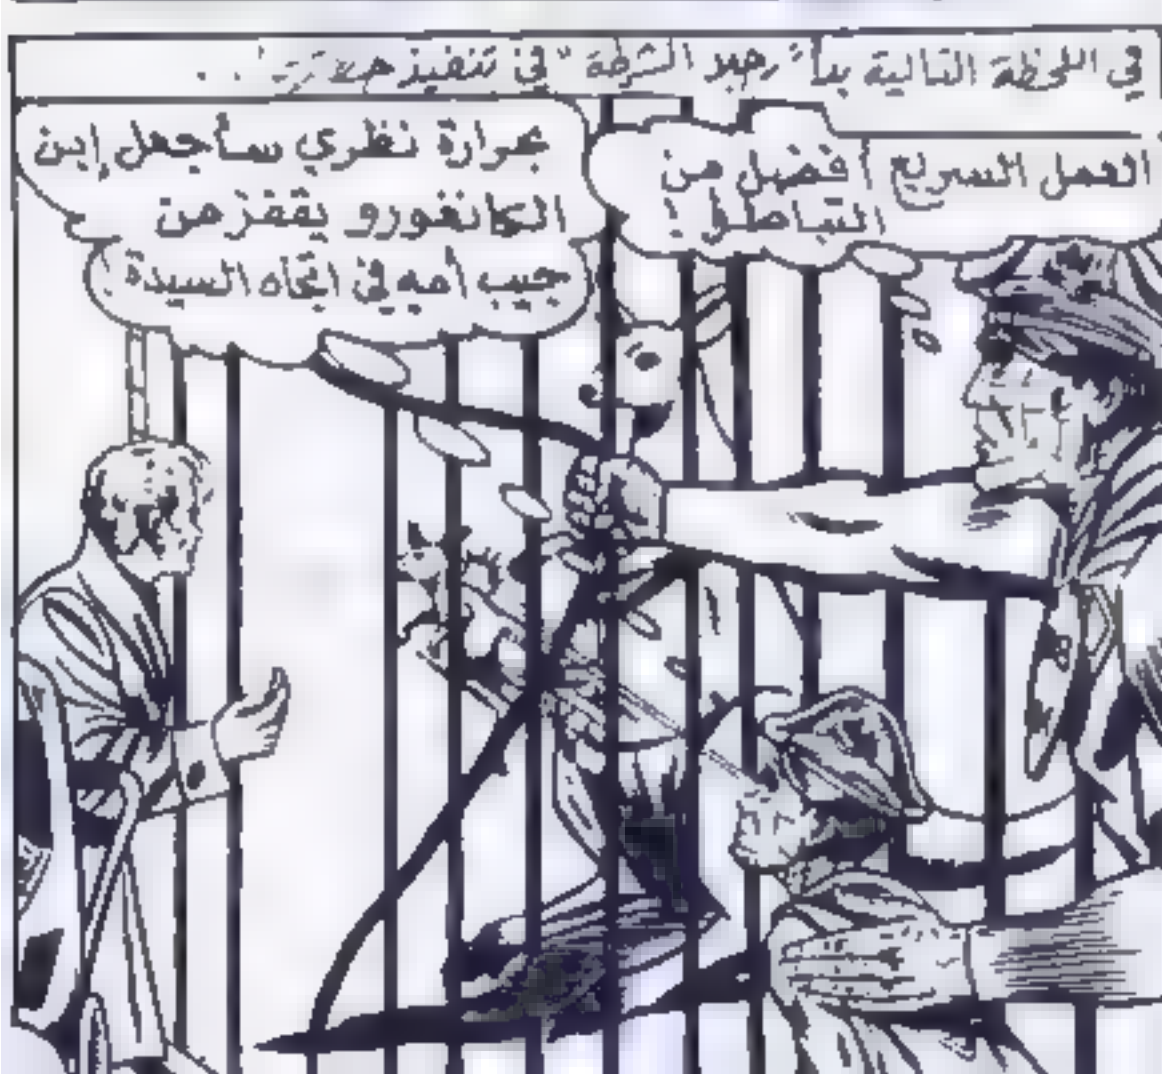 في اللحظة التالية بدأ "رجلا الشرطة" في تنفيذ
العمل السريع أفضل من
التباطؤ !
بحرارة نظري سأجعل إبن
الكانغورو يقفز من
جيب أمه في اتجاه السيدة